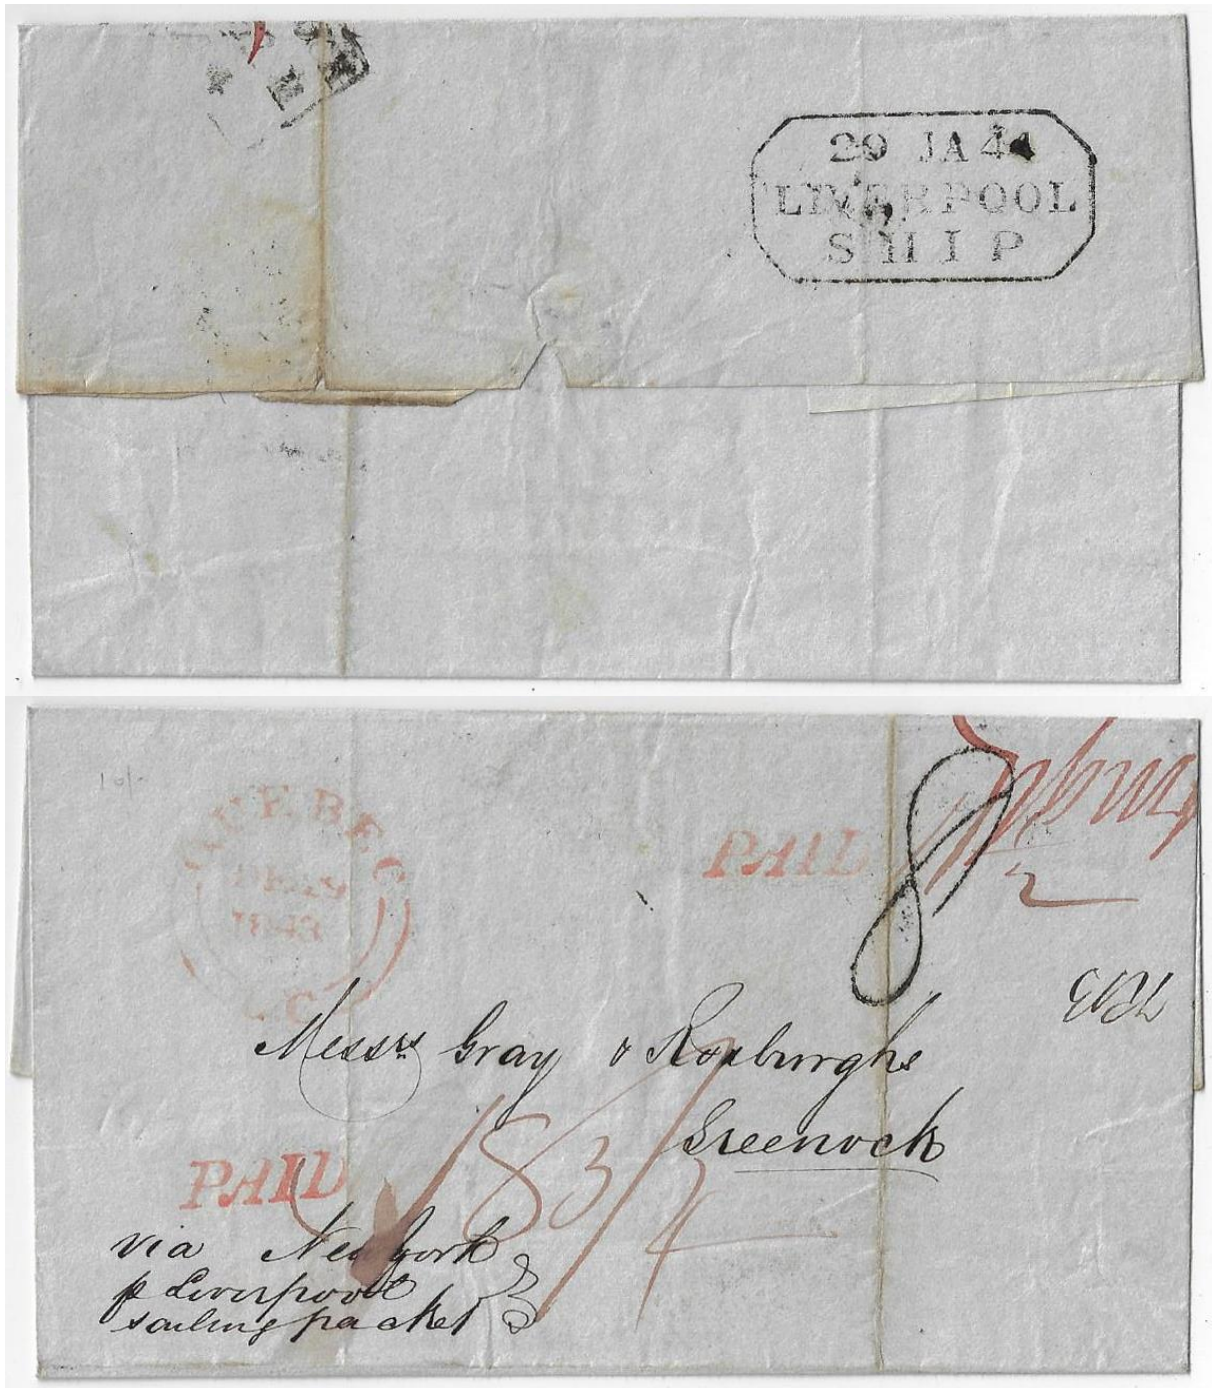 29 JA 44
LIVERPOOL
SHIP
10/-
QUEBEC
DE 19
1843
PAID
8
2
Messrs Gray & Roxburghs
Greenock
PAID
1/8 3/4
via New York
p Liverpool
sailing packet